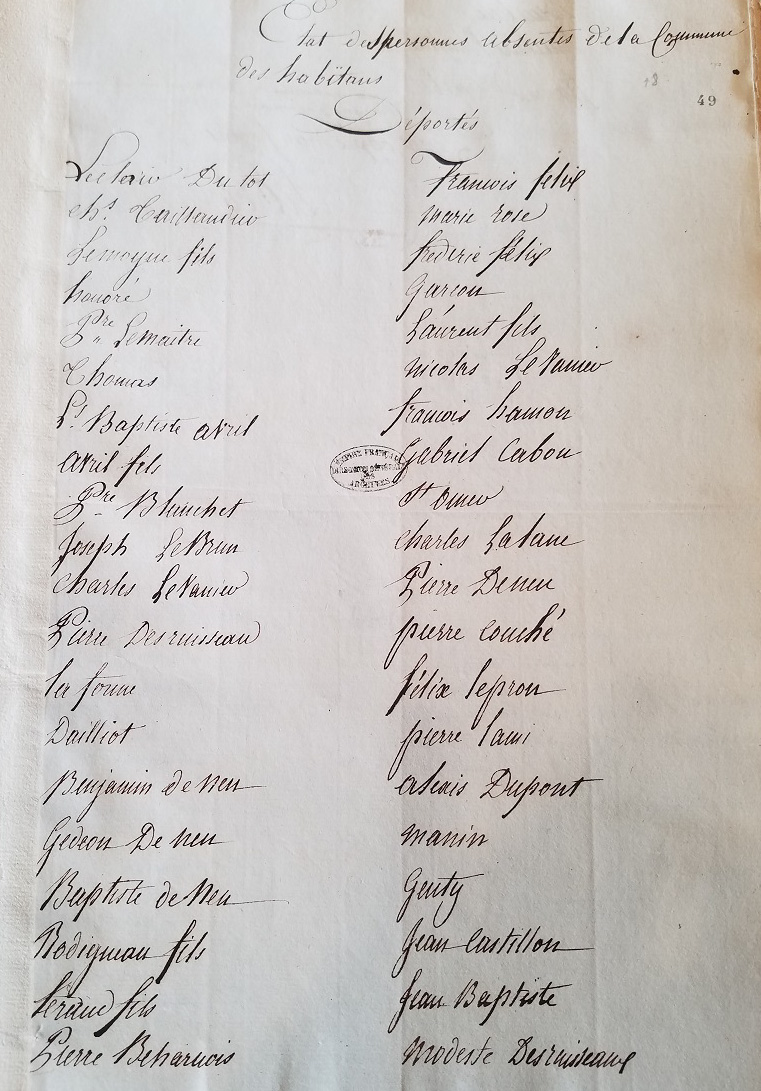 Etat des personnes absentes de la Commune
des habitans
49
Déportés
Leclerc Dutot
ch.s Taillandier
Lemoyne fils
honoré
P.re Lemaitre
Thomas
L.s Baptiste avril
avril fils
P.re Blanchet
Joseph LeBrun
Charles LeVanier
Pierre Desruisseau
la forme
Dailliot
Benjamin de neu
Gedeon De neu
Baptiste de Neu
Rodigneau fils
fils
Pierre Beharnois
Francois félix
marie rose
frederic félix
Garcon
Laurent fils
nicolas LeVanier
francois hamon
Gabriel Cabou
St Omer
charles Lalane
Pierre Deneu
pierre couché
félix lepron
pierre lami
alexis Dupont
manin
Genty
Jean Castillon
Jean Baptiste
Modeste Desruisseaux
EMPIRE FRANÇAIS
DES
ARCHIVES